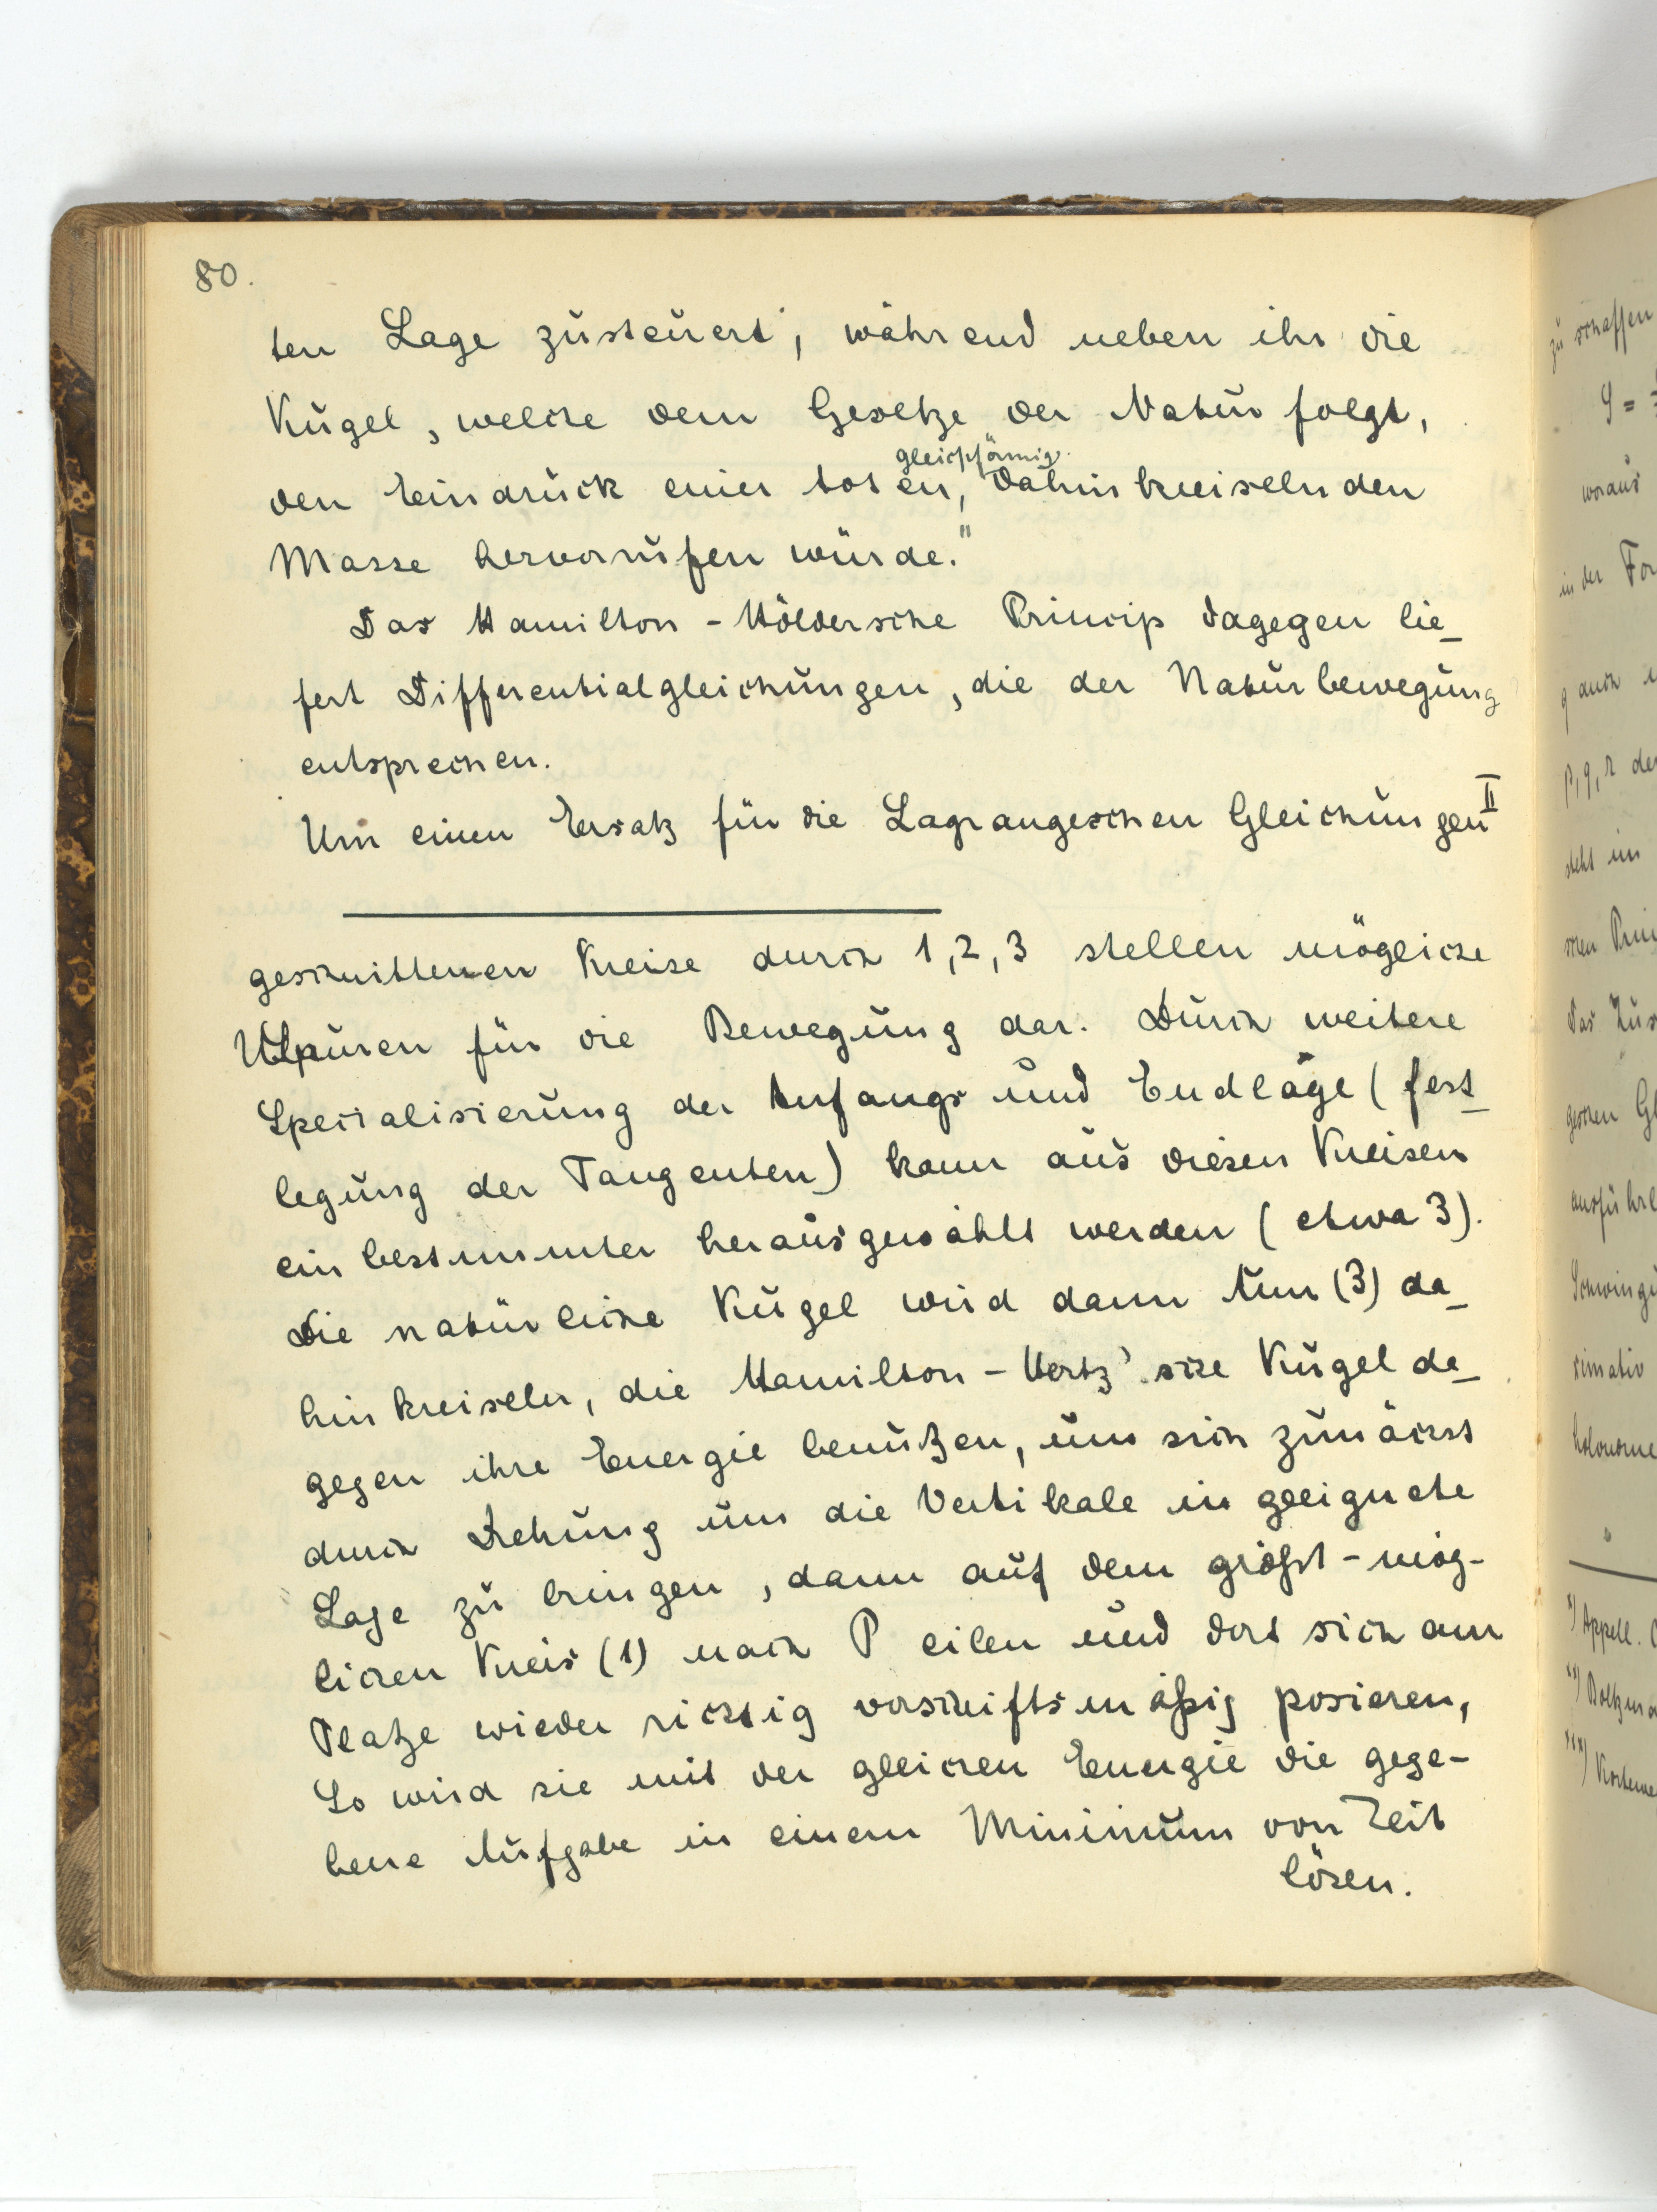 80.
ten Lage zusteuert, während neben ihr die
Kugel, welche dem Gesetze der Natur folgt,
gleichförmig
den Eindruck einer toten, dahinkreiselnden
Masse hervorrufen würde."
Das Hamilton-Höldersche Princip dagegen lie-
fert Differentialgleichungen, die der Naturbewegung
entsprechen.
Um einen Ersatz für die Lagrangeschen Gleichungen II
geschnittenen Kreise durch 1, 2, 3 stellen mögliche
Spuren für die Bewegung dar. Durch weitere
Specialisierung der Anfangs und Endlage (fest-
legung der Tangenten) kann aus diesen Kreisen
ein bestimmter herausgewählt werden (etwa 3).
Die natürliche Kugel wird dann nun (3) da-
hinkreiseln, die Hamilton-Hertz'sche Kugel da-
gegen ihre Energie benutzen, um sich zunächst
durch Drehung um die Vertikale in geeignete
Lage zu bringen, dann auf dem größt-mög-
lichen Kreis (1) nach P eilen und dort sich am
Platze wieder richtig vorschriftsmäßig posieren,
So wird sie mit der gleichen Energie die gege-
bene Aufgabe in einem Minimum von Zeit
lösen.
zu schaffen
φ =
woraus
in der
q durch
p, q, r
steht im
schen
Das
geschen
ausführl
Schwingu
ximativ
holonome
*) Appell.
**) Boltzma
***) Kortewe